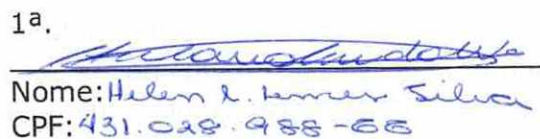 1ª.
Nome: Helen Silva
CPF: 431.028.988-66